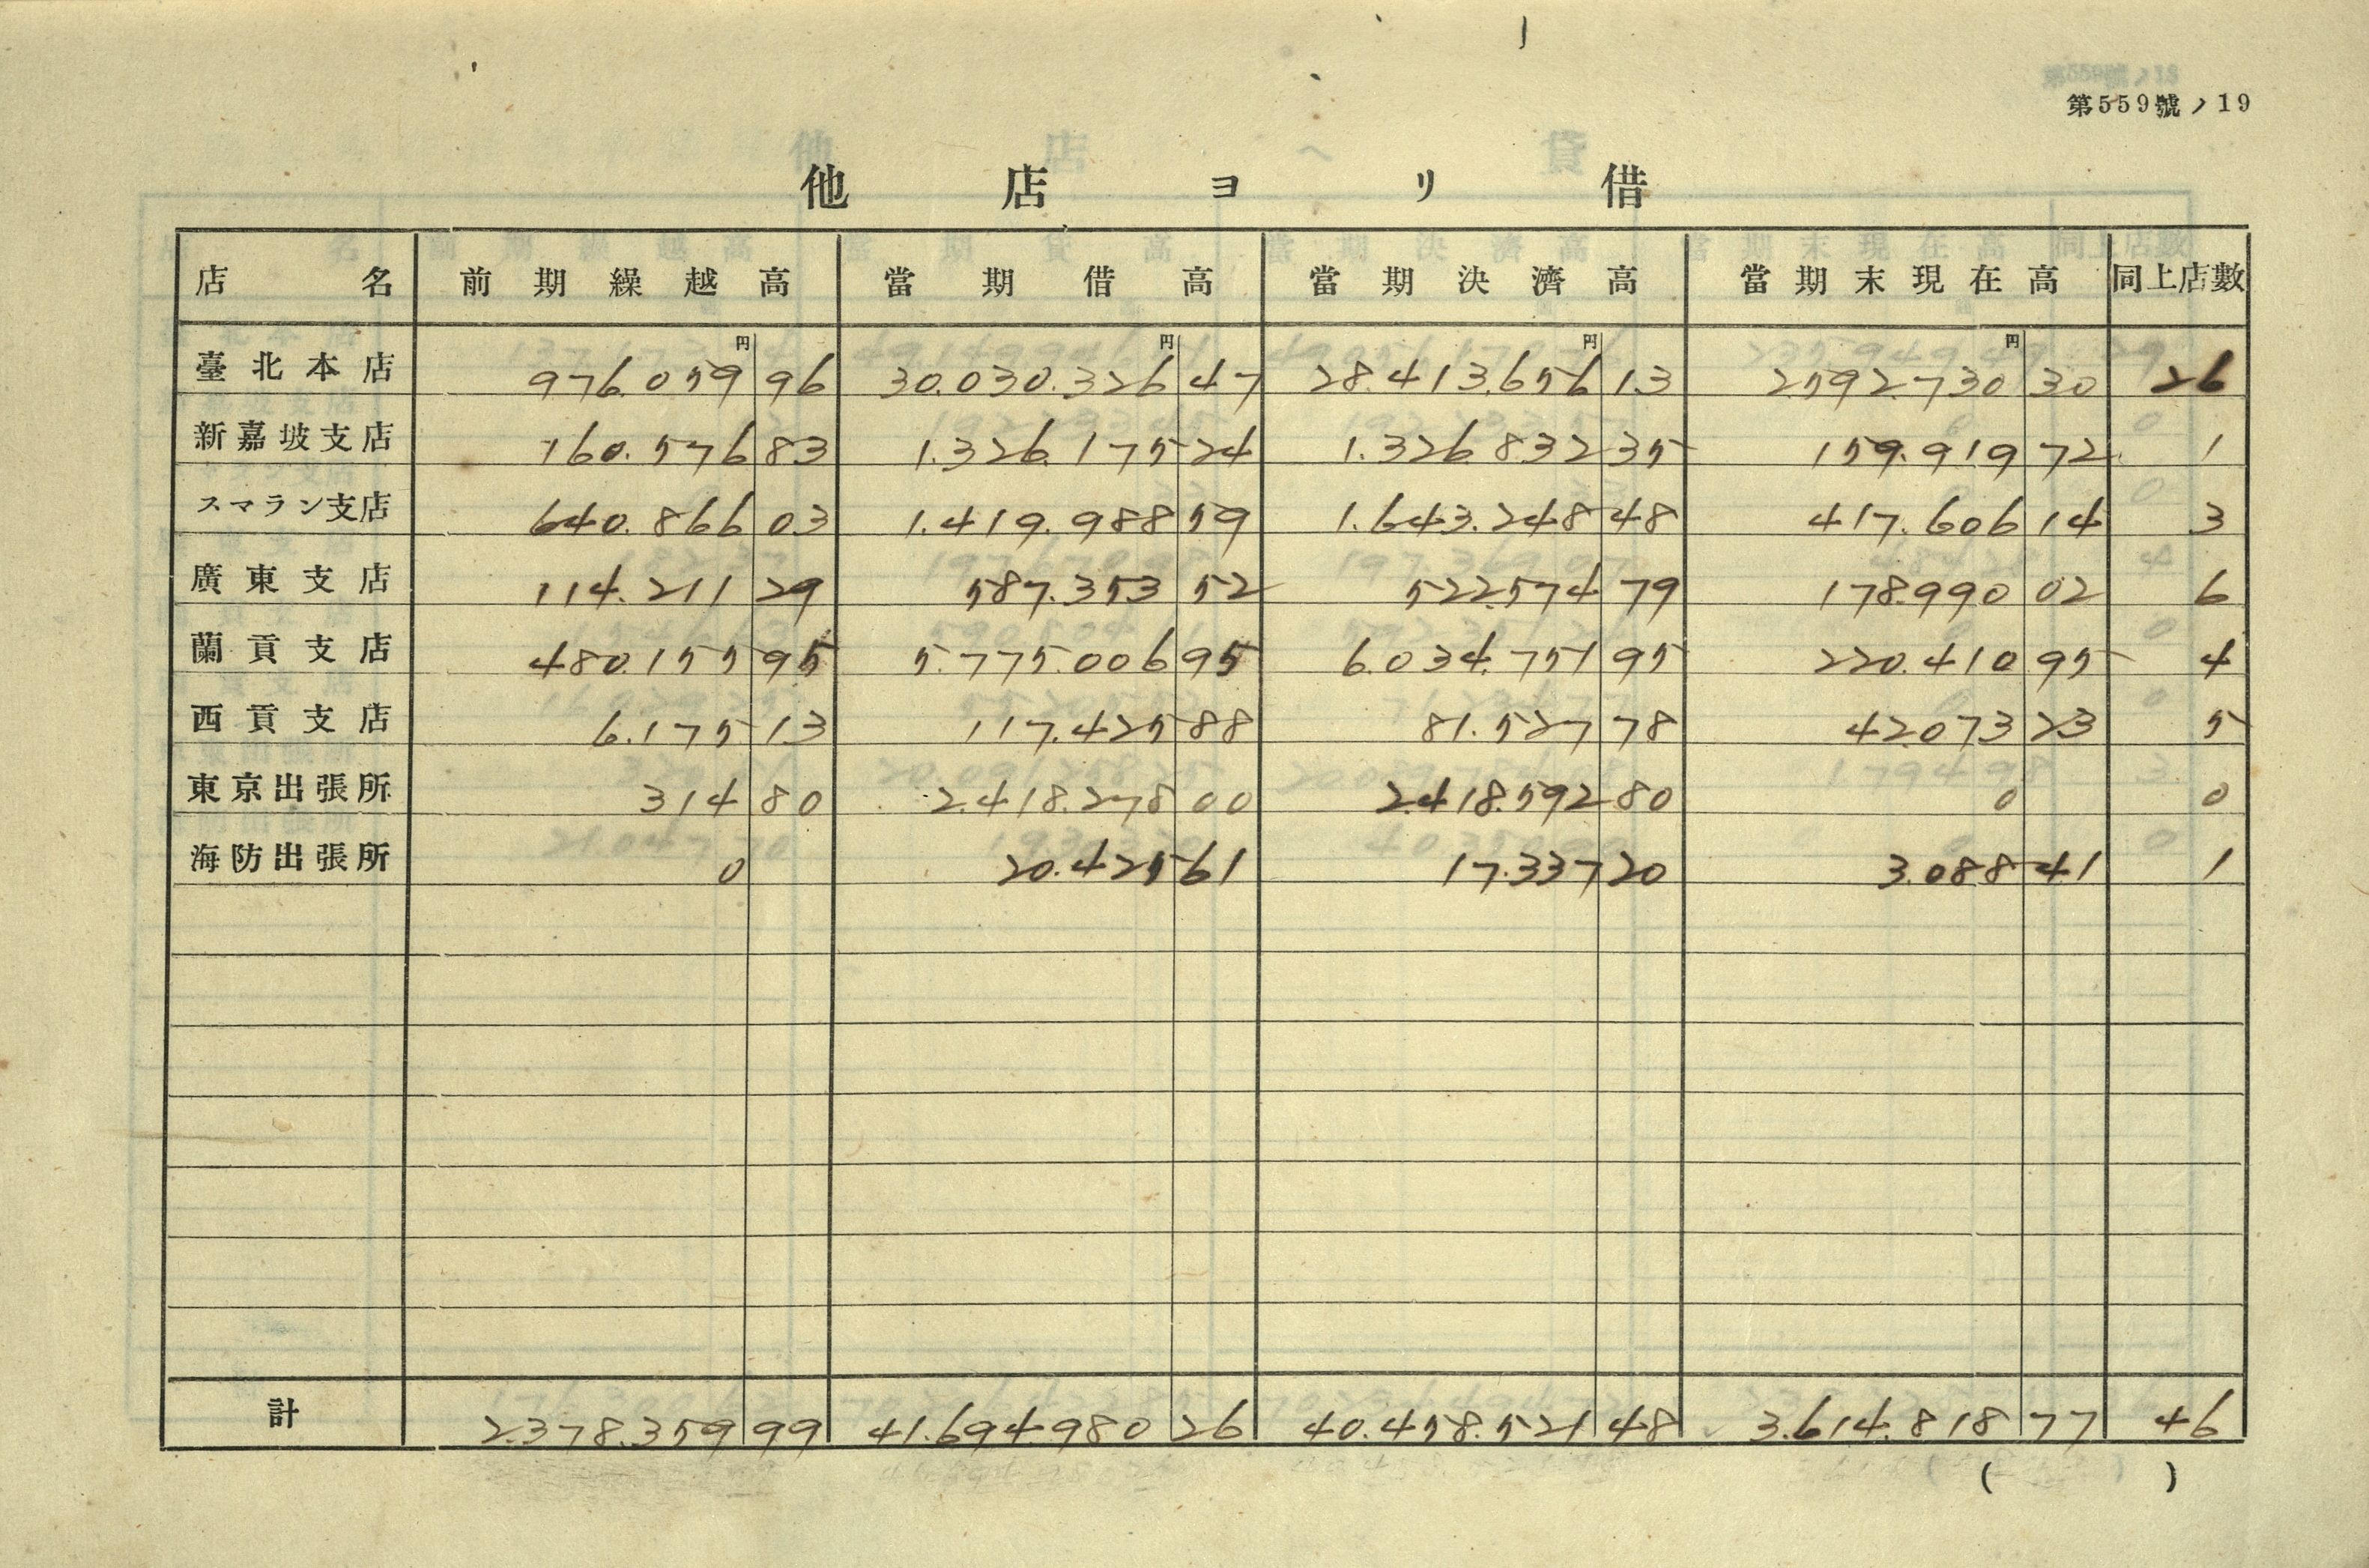 第559號ノ19
他店ヨリ借
店名 前期繰越高 當期借高 當期決濟高 當期末現在高 同上店數
円 円 円 円
臺北本店 976.059 96 30.030.326 47 28.413.656 13 2592.730 30 26
新嘉坡支店 160.576 83 1.326.175 24 1.326.832 35 159.919 72 1
スマラン支店 640.866 03 1.419.988 59 1.643.248 48 417.606 14 3
廣東支店 114.211 29 587.353 52 522.574 79 178.990 02 6
蘭貢支店 480.155 95 5.775.006 95 6.034.751 95 220.410 95 4
西貢支店 6.175 13 117.425 88 81.527 78 42.073 23 5
東京出張所 314 80 2.418.278 00 2.418.592 80 0 0
海防出張所 0 20.425 61 17.337 20 3.088 41 1
計 2.378.359 99 41.694.980 26 40.458.521 48 3.614.818 77 46
( )